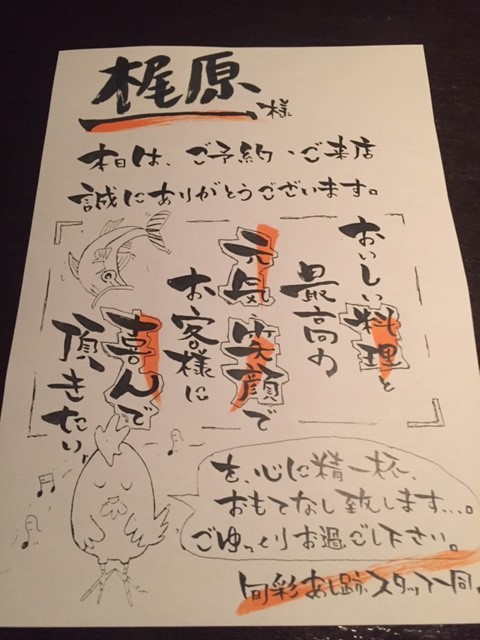 梶原様
本日は、ご予約・ご来店
誠にありがとうございます。
おいしい料理と
最高の
元気笑顔で
お客様に
喜んで
頂きたい!
を、心に精一杯、
おもてなし致します...。
ごゆっくりお過ごし下さい。
旬彩あし跡スタッフ一同。